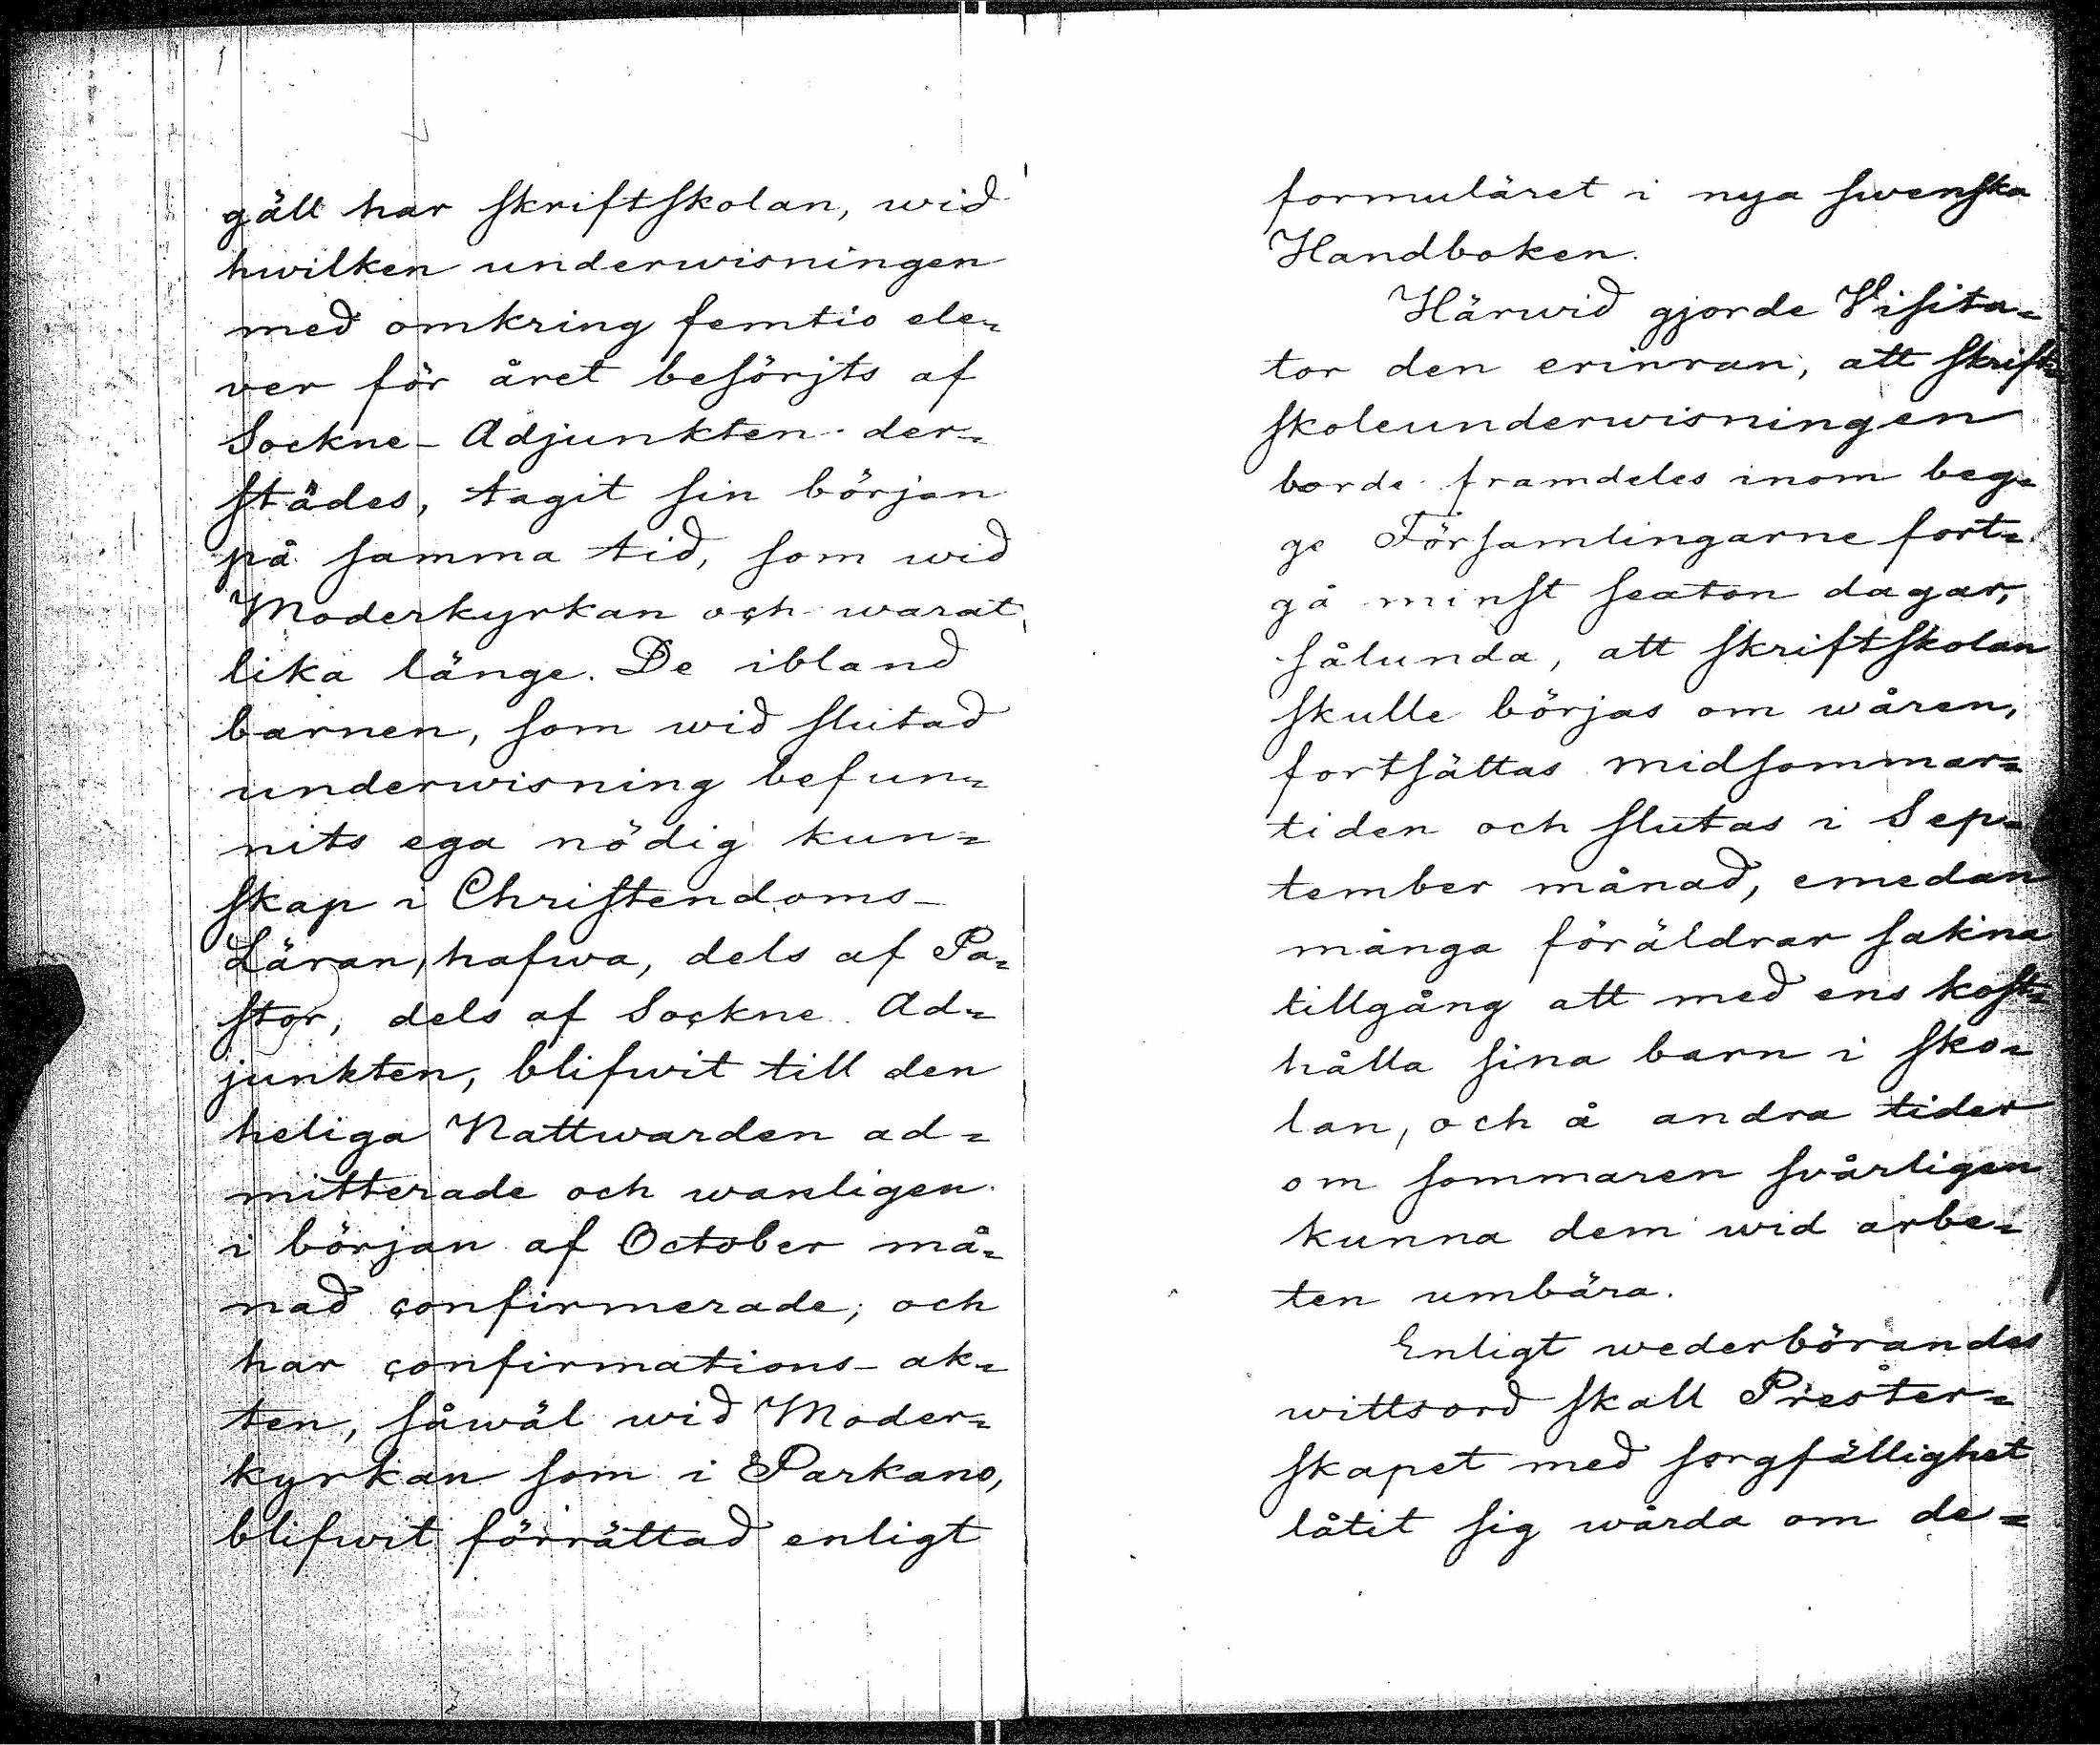 gäll har skriftskolan, wid
hwilken underwisningen
med omkring femtio ele=
ver för året besörjts af
Sockne-Adjunkten der=
städes, tagit sin början
på samma tid, som wid
Moderkyrkan och warat
lika länge. De ibland
barnen, som wid slutad
underwisning befun=
nits ega nödig kun=
skap i Christendoms-
Läran, hafwa, dels af Pa=
stor, dels af Sockne Ad=
junkten, blifwit till den
heliga Nattwarden ad=
mitterade och wanligen
i början af October må=
nad confirmerade; och
har confirmations-ak=
ten, såwäl wid Moder=
kyrkan som i Parkano,
blifwit förrättad enligt
formuläret i nya swenska
Handboken.
Härwid gjorde Visita=
tor den erinran, att skrift=
skoleunderwisningen
borde framdeles inom beg=
ge Församlingarne fort=
gå minst sexton dagar,
sålunda, att skriftskolan
skulle börjas om wåren,
fortsättas midsommar=
tiden och slutas i Sep=
tember månad, emedan
många föräldrar sakna
tillgång att med ens kost=
hålla sina barn i sko=
lan, och å andra tider
om sommaren svårligen
kunna dem wid arbe=
ten umbära.
Enligt wederbörandes
wittsord skall Prester=
skapet med sorgfällighet
låtit sig wårda om de=